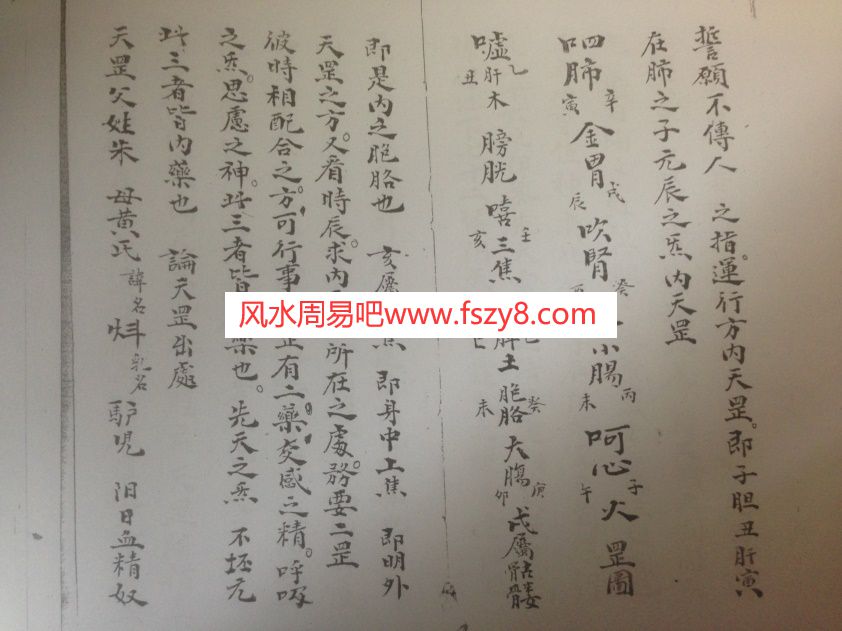 誓願不傳人 之指。運行方内天罡。即子胆丑肝寅
在肺之子元辰之炁内天罡
呬肺金胃 吹腎 小腸 呵心火 罡圖
辛 戌 癸 丙 子
寅 辰 未 午
嘘肝木 膀胱 嘻三焦 土 胞胳 大腸 戌屬骷髏
乙 壬 癸 庚
丑 亥 未 卯
即是内之胞胳也 亥屬 焦 即身中上焦 即明外
天罡之方。又看時辰。求内 所在之處。務要二罡
彼時相配合之方。可行事 有二藥。交感之精。呼吸
之炁。思慮之神。此三者皆 藥也。先天之炁 不坯元
此三者皆内藥也 論天罡出處
天罡父姓朱 母黄氏 諱名 乳名 馿児 汨日血精奴
风水周易吧www.fszy8.com